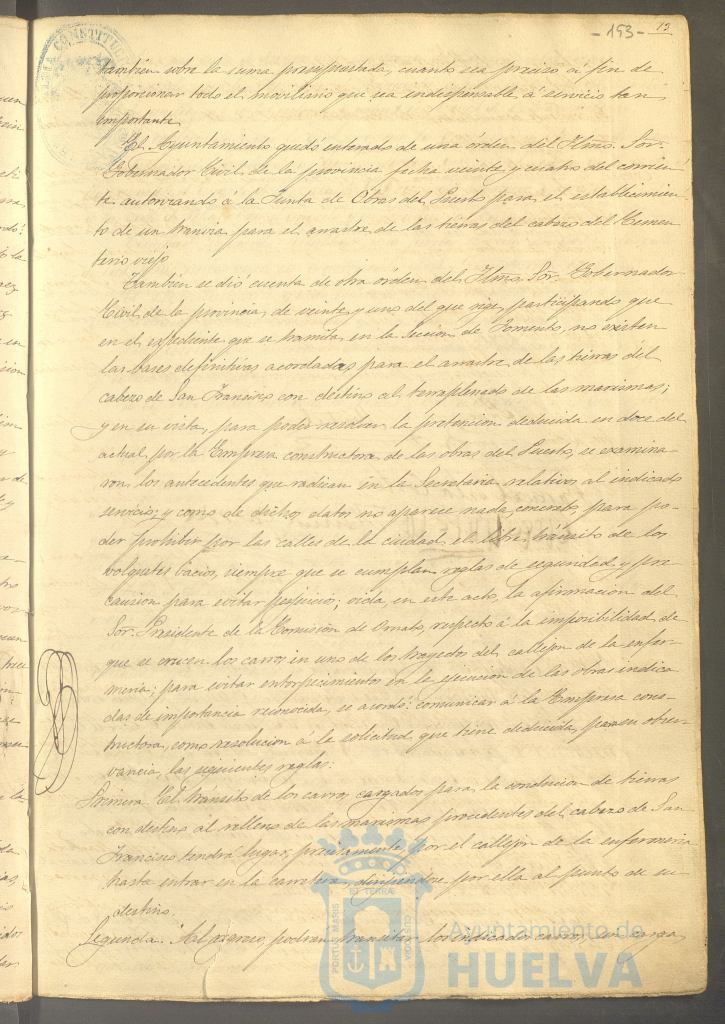 - 153 - 13
también sobre la suma presupuestada, cuanto sea preciso á fin de
proporcionar todo el moviliario que sea indispensable á servicio tan
importante.
El Ayuntamiento quedó enterado de una órden del Ilmo. Sor.
Gobernador Civil de la provincia fecha veinte y cuatro del corrien-
te autorizando á la Junta de Obras del Puerto para el establecimien-
to de un tranvia para el arrastre de las tierras del cabezo del Cemen-
terio viejo.
También se dió cuenta de otra órden del Ilmo. Sor. Gobernador
Civil de la provincia, de veinte y uno del que rige, participando que
en el expediente que se tramita en la Sección de Fomento, no existen
las bases definitivas acordadas para el arrastre de las tierras del
cabezo de San Francisco con destino al terraplenado de las marismas;
y en su vista, para poder resolver la pretencion deducida en doce del
actual, por la Empresa constructora de las obras del Puerto, se examina-
ron los antecedentes que radican en la Secretaria relativos al indicado
servicio; y como de dichos datos no aparece nada concreto para po-
der prohibir por las calles de la ciudad el libre tránsito de los
volquetes vacios, siempre que se cumplan reglas de seguridad y pre-
caucion para evitar perjuicios; oida, en este acto, la afirmacion del
Sor. Presidente de la Comisión de Ornato, respecto á la imposibilidad de
que se crucen los carros en uno de los trayectos del callejon de la enfer-
meria; para evitar entorpecimientos en la ejecucion de las obras indica-
das de importancia reconocida, se acordó: comunicar á la Empresa cons-
tructora, como resolucion á la solicitud que tiene deducida, para su obser-
vancia, las siguientes reglas:
Primera. El tránsito de los carros cargados para la conduccion de tierras
con destino al relleno de las marismas procedentes del cabezo de San
Francisco tendrá lugar, precisamente, por el callejon de la enfermeria
hasta entrar en la carretera, dirigiendose por ella al punto de su
destino.
Segunda. Al regreso, podrán transitar los indicados carros, sin carga,
PORTUS MARIS
ET TERRÆ
CUSTODIA
Ayuntamiento de
HUELVA